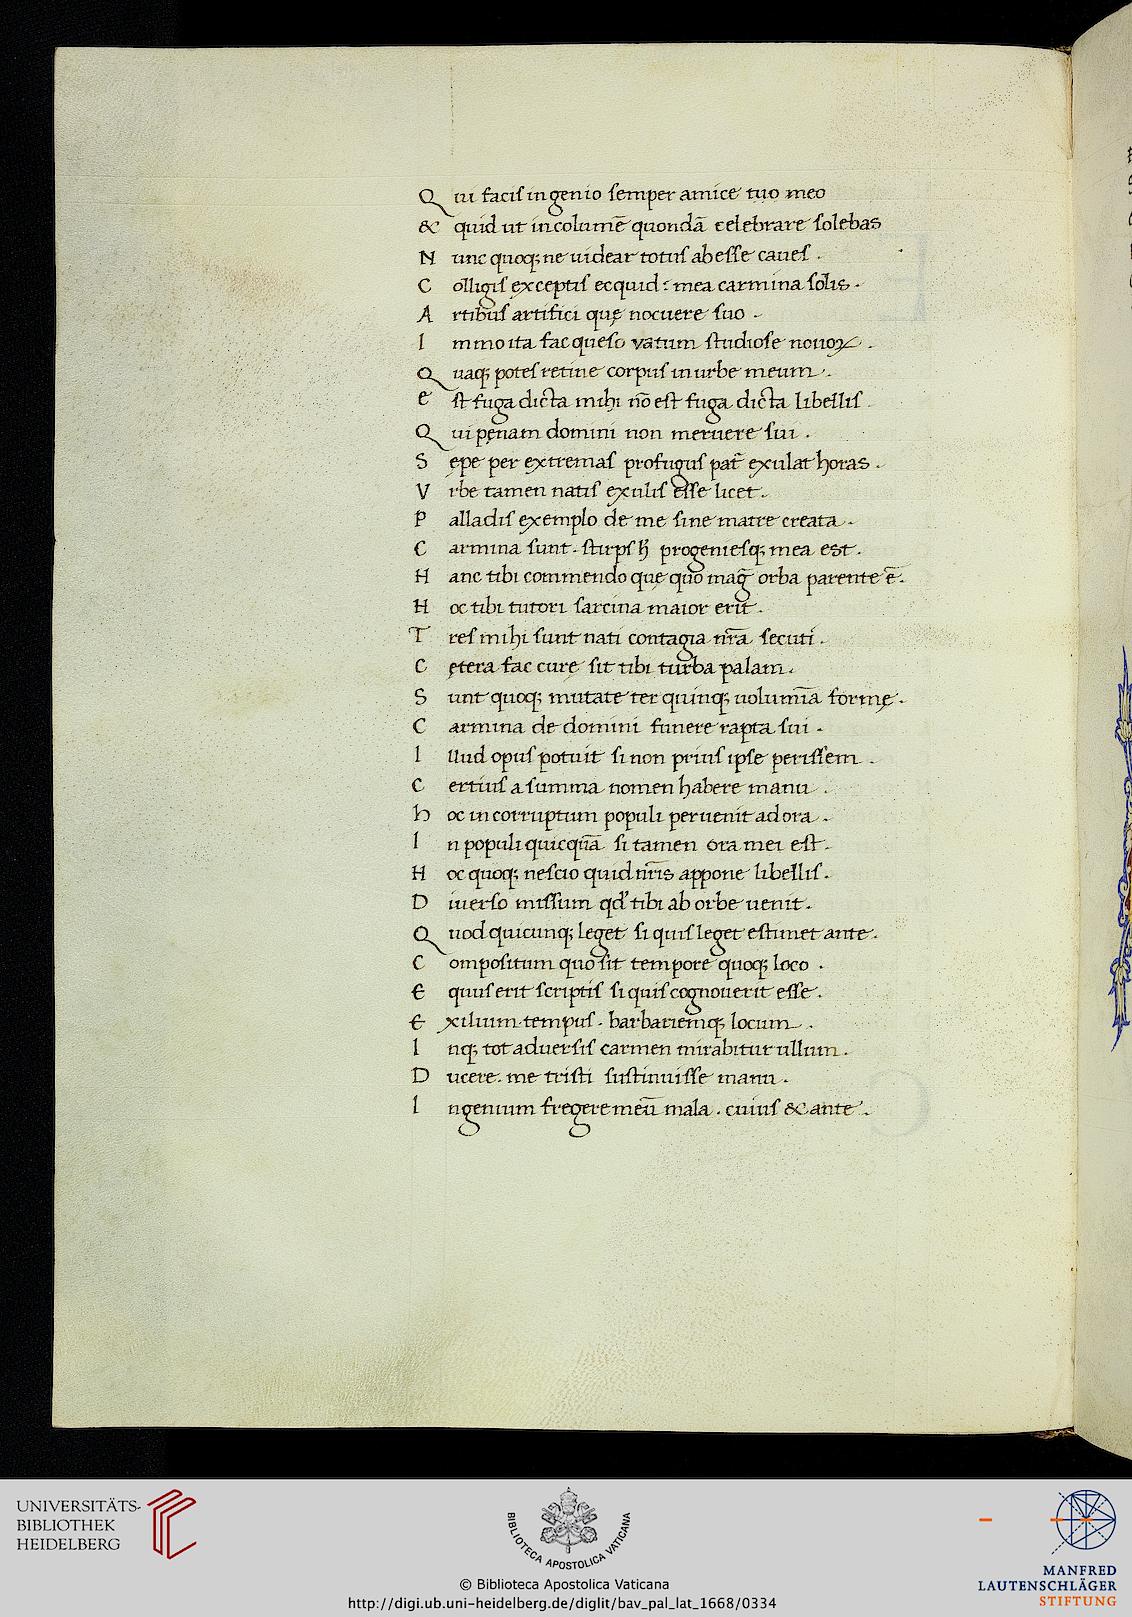 Qui facis ingenio semper amice tuo meo
& quid ut incolumē quondā celebrare solebas
Nunc quoqꝫ ne uidear totus abesse caues .
Colligis exceptis ecquid : mea carmina solis .
Artibus artifici quę nocuere suo .
Immo ita fac queso vatum studiose nouoꝝ .
Quaqꝫ potes retine corpus in urbe meum .
est fuga dicta mihi nō est fuga dicta libellis
Qui pęnam domini non meruere sui .
Sępe per extremas profugus pat̄ exulat horas .
Vrbe tamen natis exulis esse licet .
Palladis exemplo de me sine matre creata .
Carmina sunt . stirps h̄ progeniesqꝫ mea est .
Hanc tibi commendo quę quo mag̃ orba parente ē .
Hoc tibi tutori sarcina maior erit .
Tres mihi sunt nati contagia nr̄a secuti .
Cętera fac curę sit tibi turba palam .
Sunt quoqꝫ mutatę ter quinqꝫ uolumīa formę .
Carmina de domini funere rapta sui .
Illud opus potuit si non prius ipse perissem .
Certius a summa nomen habere manu .
hoc incorruptum populi peruenit ad ora .
In populi quicquā si tamen ora mei est .
Hoc quoqꝫ nescio quid nr̄is appone libellis .
Diuerso missum qd̓ tibi ab orbe uenit .
Quod quicunqꝫ leget si quis leget estimet ante .
Compositum quo sit tempore quoqꝫ loco .
Equus erit scriptis si quis cognouerit esse .
exilium tempus . barbariemqꝫ locum .
Inqꝫ tot aduersis carmen mirabitur ullum .
Ducere . me tristi sustinuisse manu .
Ingenium fregere meū mala . cuius & ante .
UNIVERSITÄTS-
BIBLIOTHEK
HEIDELBERG
BIBLIOTECA APOSTOLICA VATICANA
MANFRED
LAUTENSCHLÄGER
STIFTUNG
© Biblioteca Apostolica Vaticana
http://digi.ub.uni-heidelberg.de/diglit/bav_pal_lat_1668/0334